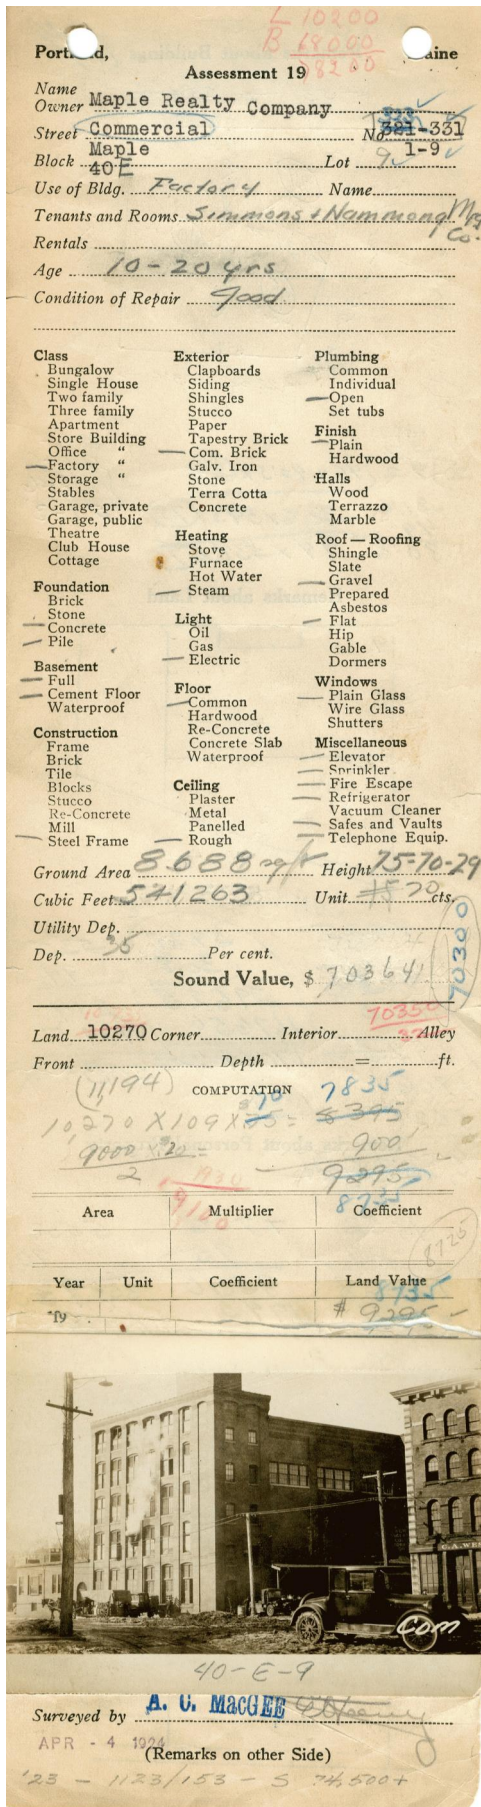 L 10200
B 68000
78200
Portland, Maine
Assessment 19
Name
Owner Maple Realty Company
333
Street Commercial No 321-331
Maple 1-9
Block 40 E Lot 9
Use of Bldg. Factory Name
Tenants and Rooms Simmons + Hammond Mfg Co.
Rentals
Age 10-20 yrs
Condition of Repair Good
Class
Bungalow
Single House
Two family
Three family
Apartment
Store Building
Office "
Factory "
Storage "
Stables
Garage, private
Garage, public
Theatre
Club House
Cottage
Foundation
Brick
Stone
Concrete
Pile
Basement
Full
Cement Floor
Waterproof
Construction
Frame
Brick
Tile
Blocks
Stucco
Re-Concrete
Mill
Steel Frame
Exterior
Clapboards
Siding
Shingles
Stucco
Paper
Tapestry Brick
Com. Brick
Galv. Iron
Stone
Terra Cotta
Concrete
Heating
Stove
Furnace
Hot Water
Steam
Light
Oil
Gas
Electric
Floor
Common
Hardwood
Re-Concrete
Concrete Slab
Waterproof
Ceiling
Plaster
Metal
Panelled
Rough
Plumbing
Common
Individual
Open
Set tubs
Finish
Plain
Hardwood
Halls
Wood
Terrazzo
Marble
Roof — Roofing
Shingle
Slate
Gravel
Prepared
Asbestos
Flat
Hip
Gable
Dormers
Windows
Plain Glass
Wire Glass
Shutters
Miscellaneous
Elevator
Sprinkler
Fire Escape
Refrigerator
Vacuum Cleaner
Safes and Vaults
Telephone Equip.
Ground Area 8688 sq ft Height 75-70-29
Cubic Feet 541263 Unit 20 cts.
Utility Dep.
Dep. 35 Per cent.
Sound Value, $ 703641
70300
70350
Land 10270 Corner Interior Alley
Front Depth = ft.
(11,194) COMPUTATION 7835
70
10,270 X 109 X 75 = 8395
9000 X 20 = 900
2 9295
9100
8735
Area Multiplier Coefficient
8725
Year Unit Coefficient Land Value
8735
19 $ 9295 -
C.A. WE
Com
40-E-9
Surveyed by A. C. MacGEE
APR - 4 1924
(Remarks on other Side)
'23 - 1123/153 - S 74,500+